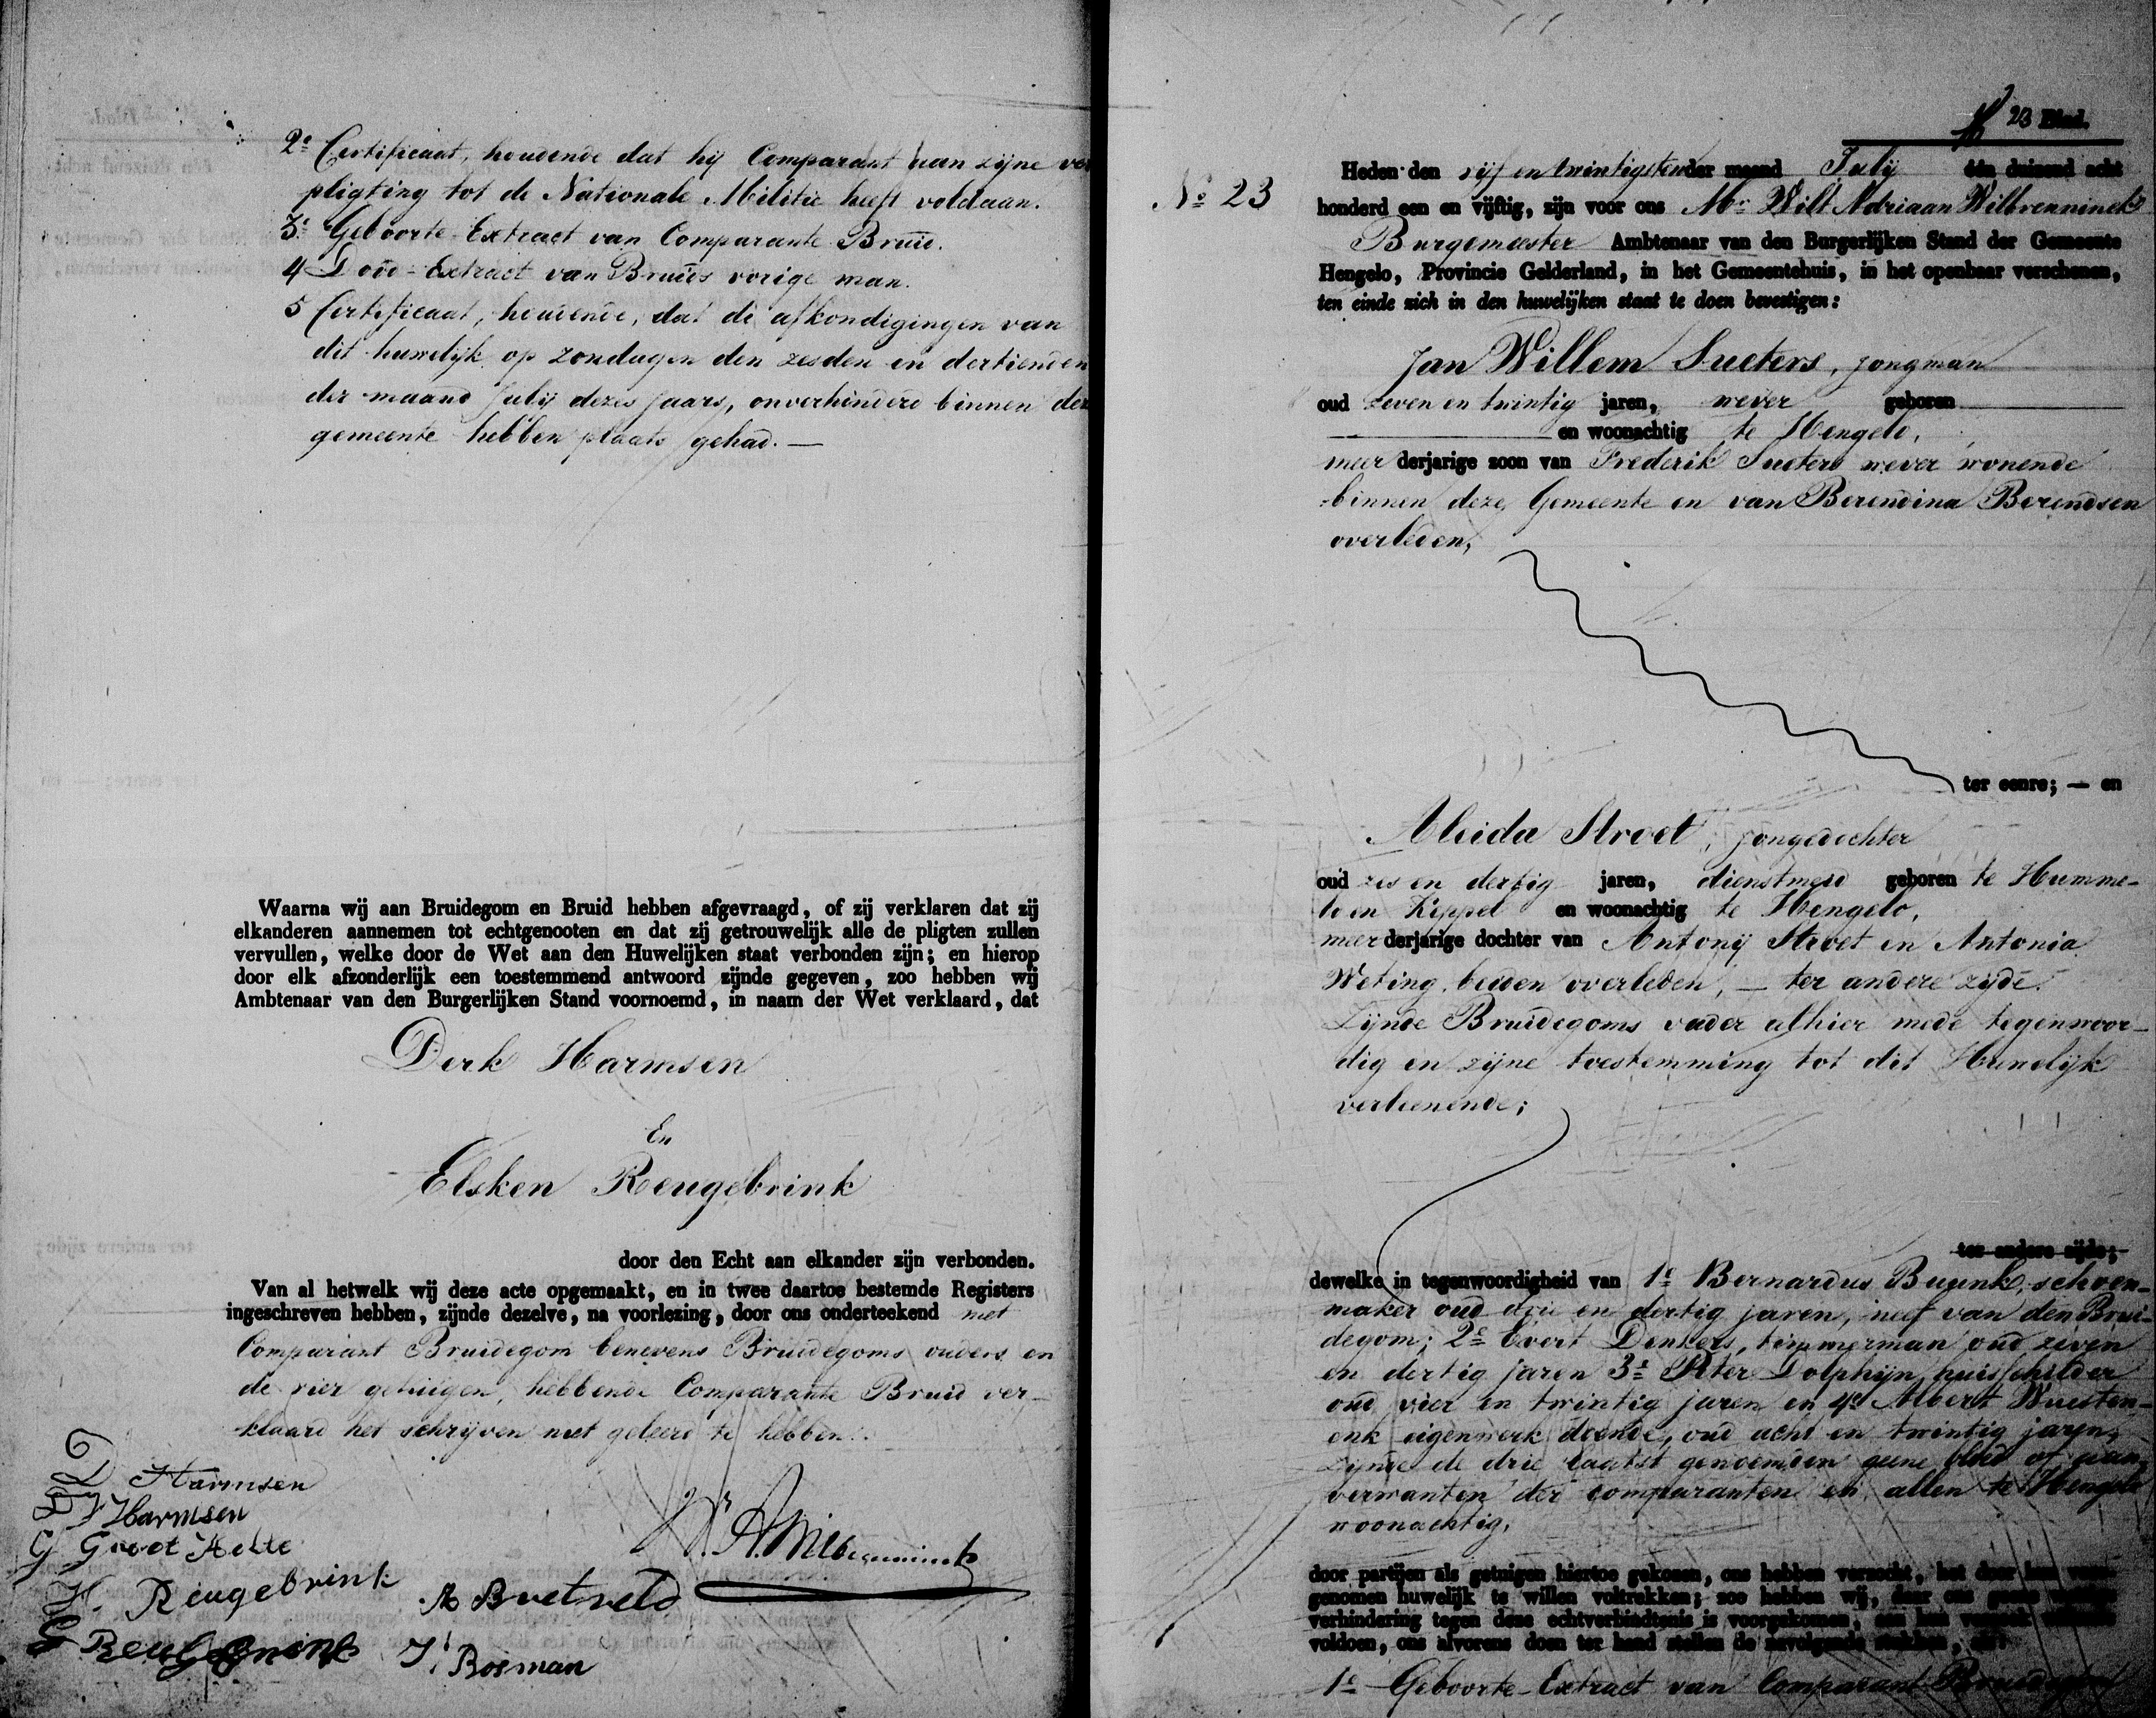 2e Certificaat, houdende dat hij Comparant aan zijne ver
pligting tot de Nationale Militie heeft voldaan.
3e Geboorte-Extract van Comparante Bruid.
4 Dood-Extract van Bruids vorige man.
5 Certificaat, houdende, dat de afkondigingen van
dit huwelijk op zondagen den zesden en dertienden
der maand Julij dezes jaars, onverhinderd binnen dez
gemeente hebben plaats gehad. —
Waarna wij aan Bruidegom en Bruid hebben afgevraagd, of zij verklaren dat zij
elkanderen aannemen tot echtgenooten en dat zij getrouwelijk alle de pligten zullen
vervullen, welke door de Wet aan den Huwelijken staat verbonden zijn; en hierop
door elk afzonderlijk een toestemmend antwoord zijnde gegeven, zoo hebben wij
Ambtenaar van den Burgerlijken Stand voornoemd, in naam der Wet verklaard, dat
Derk Harmsen
En
Elsken Reugebrink
door den Echt aan elkander zijn verbonden.
Van al hetwelk wij deze acte opgemaakt, en in twee daartoe bestemde Registers
ingeschreven hebben, zijnde dezelve, na voorlezing, door ons onderteekend met
Comparant Bruidegom benevens Bruidegoms ouders en
de vier getuigen, hebbende Comparante Bruid ver-
klaard het schrijven niet geleerd te hebben.
D Harmsen
D J Harmsen
G Groot
H. Reugebrink
G
J Bosman
23 Blad.
No 23
Heden den vijf en twintigsten der maand Julij één duizend acht
honderd een en vijftig, zijn voor ons Mr Wilt Adriaan Wilbrenninck
Burgemeester Ambtenaar van den Burgerlijken Stand der Gemeente
Hengelo, Provincie Gelderland, in het Gemeentehuis, in het openbaar verschenen,
ten einde zich in den huwelijken staat te doen bevestigen:
Jan Willem Sueters, jongman
oud zeven en twintig jaren, wever geboren
en woonachtig te Hengelo,
meer derjarige zoon van Frederik Sueters wever wonende
binnen deze Gemeente en van Berendina Berendsen
overleden,
ter eenre; — en
Aleida Stroet, jongedochter
oud zes en dertig jaren, dienstmeid geboren te Humme-
lo en Keppel en woonachtig te Hengelo,
meer derjarige dochter van Antonij Stroet en Antonia
Weting, beiden overleden, — ter andere zijde.
Zijnde Bruidegoms vader alhier mede tegenwoor-
dig en zijne toestemming tot dit Huwelijk
verleenende;
ter andere zijde;
dewelke in tegenwoordigheid van 1e Bernardus Buunk, schoen-
maker oud drie en dertig jaren, neef van den Brui-
degom; 2e Evert Denkers, timmerman oud zeven
en dertig jaren 3e Peter Dolphijn huisschilder
oud vier en twintig jaren en 4e Albert Wuesten-
enk eigenwerk doende, oud acht en twintig jaren,
zijnde de drie laatst genoemden geene bloed of aan
verwanten der comparanten en allen te Hengelo
woonachtig,
door partijen als getuigen hiertoe gekozen, ons hebben verzocht, het door hen
genomen huwelijk te willen voltrekken; zoo hebben wij, daar ons geene
verhindering tegen deze echtverbindtenis is voorgekomen, aan hun verzoek
voldoen, ons alvorens doen ter hand stellen de navolgende stukken, als:
1e Geboorte-Extract van Comparant Bruidegom